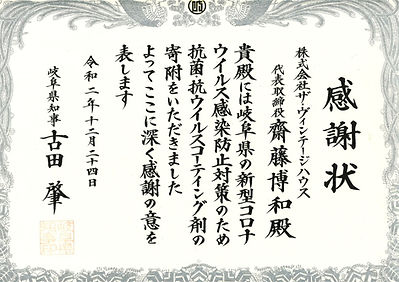 感謝状
株式会社ザ・ヴィンテージハウス
代表取締役 齋藤博和殿
貴殿には岐阜県の新型コロナ
ウイルス感染防止対策のため
抗菌抗ウイルスコーティング剤の
寄附をいただきました
よってここに深く感謝の意を
表します
令和二年十二月二十四日
岐阜県知事 古田肇